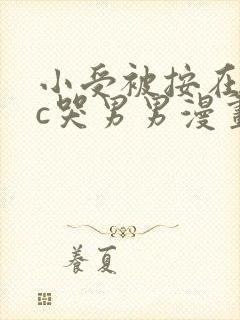 小受被按在
c哭男男漫畫
養夏